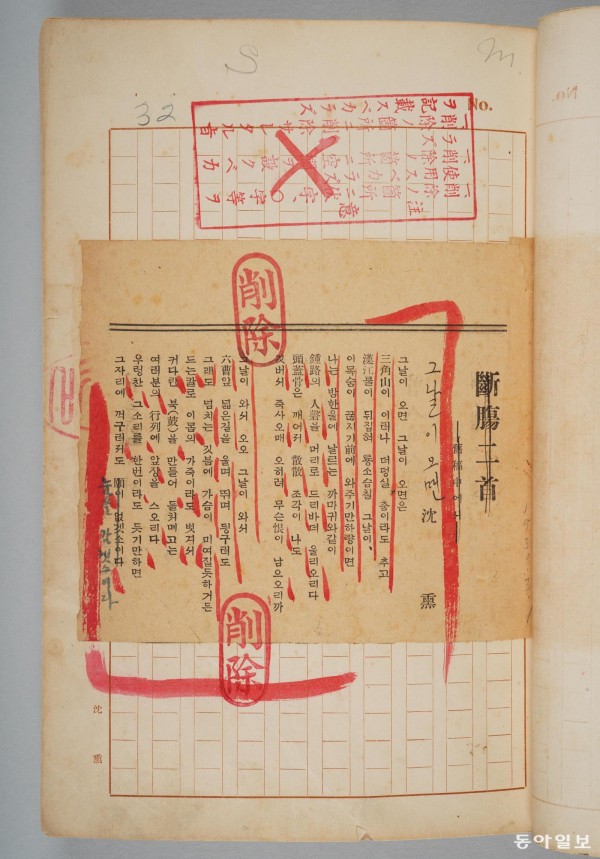 No.
32
S
m
注意
一、削除ノ箇所ニ
使用スベカラズ
削除
斷膓二首
그날이 오면
沈 熏
그날이 오면 그날이 오면은
三角山이 이러나 더덩실 춤이라도 추고
漢江물이 뒤집혀 룡소슴칠 그날이、
이목숨이 끊지기前에 와주기만하량이면
나는 밤한울에 날르는 까마귀와같이
鍾路의 人磬을 머리로 드리바더 울리오리다
頭蓋骨은 깨어저 散散 조각이 나도
깃버서 죽사오매 오히려 무슨恨이 남으오리까
그날이 와서 오오 그날이 와서
六曹앞 넓은길을 울며 뛰며 뒹구러도
그래도 넘치는 깃븜에 가슴이 미여질듯하거든
드는칼로 이몸의 가죽이라도 벳겨서
커다란 북(鼓)을 만들어 둘처메고는
여러분의 行列에 앞장을 스오리다
우렁찬 그소리를 한번이라도 듯기만하면
그자리에 꺽구러저도 願이 없겟소이다
削除
沈 熏
동아일보